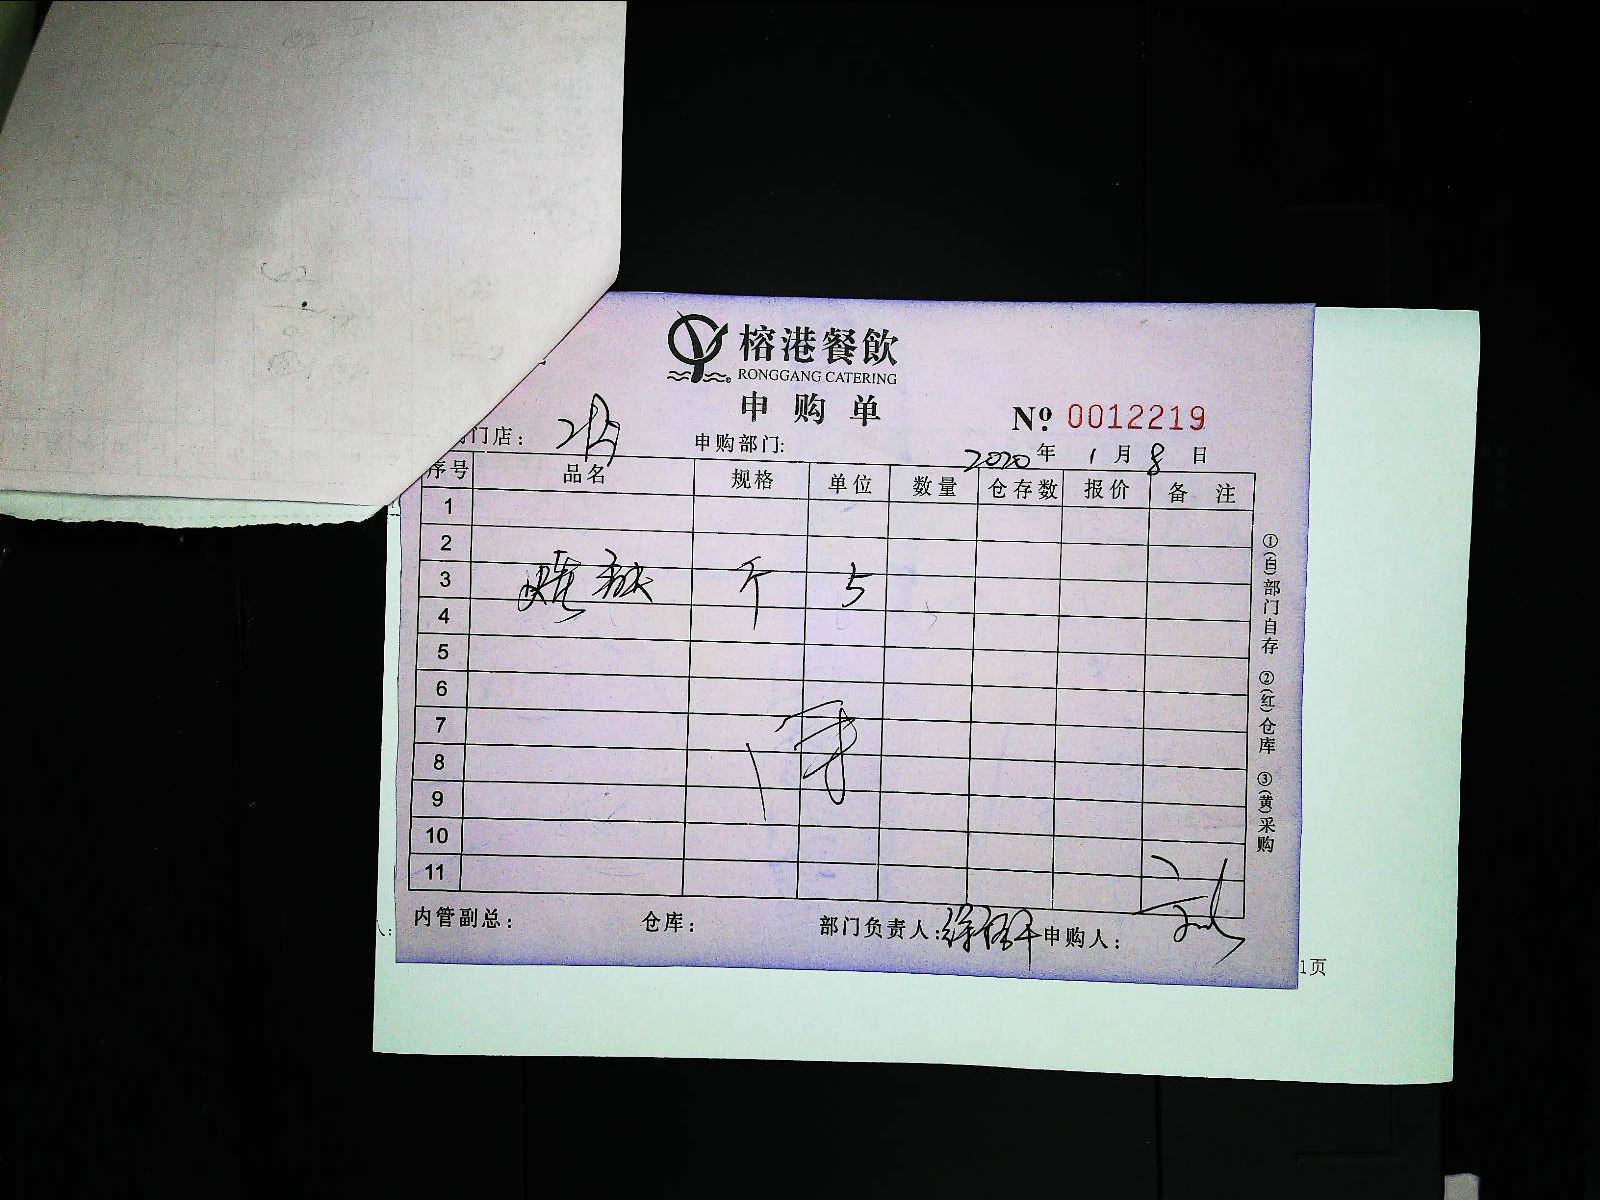 榕港餐飲
RONGGANG CATERING
申购单
Nº 0012219
门店：
申购部门：
2020年1月8日
序号 品名 规格 单位 数量 仓存数 报价 备注
1
2
3 斤 5
4
5
6
7
8
9
10
11
内管副总： 仓库： 部门负责人： 申购人：
①(白)部门自存 ②(红)仓库 ③(黄)采购
人：
1页